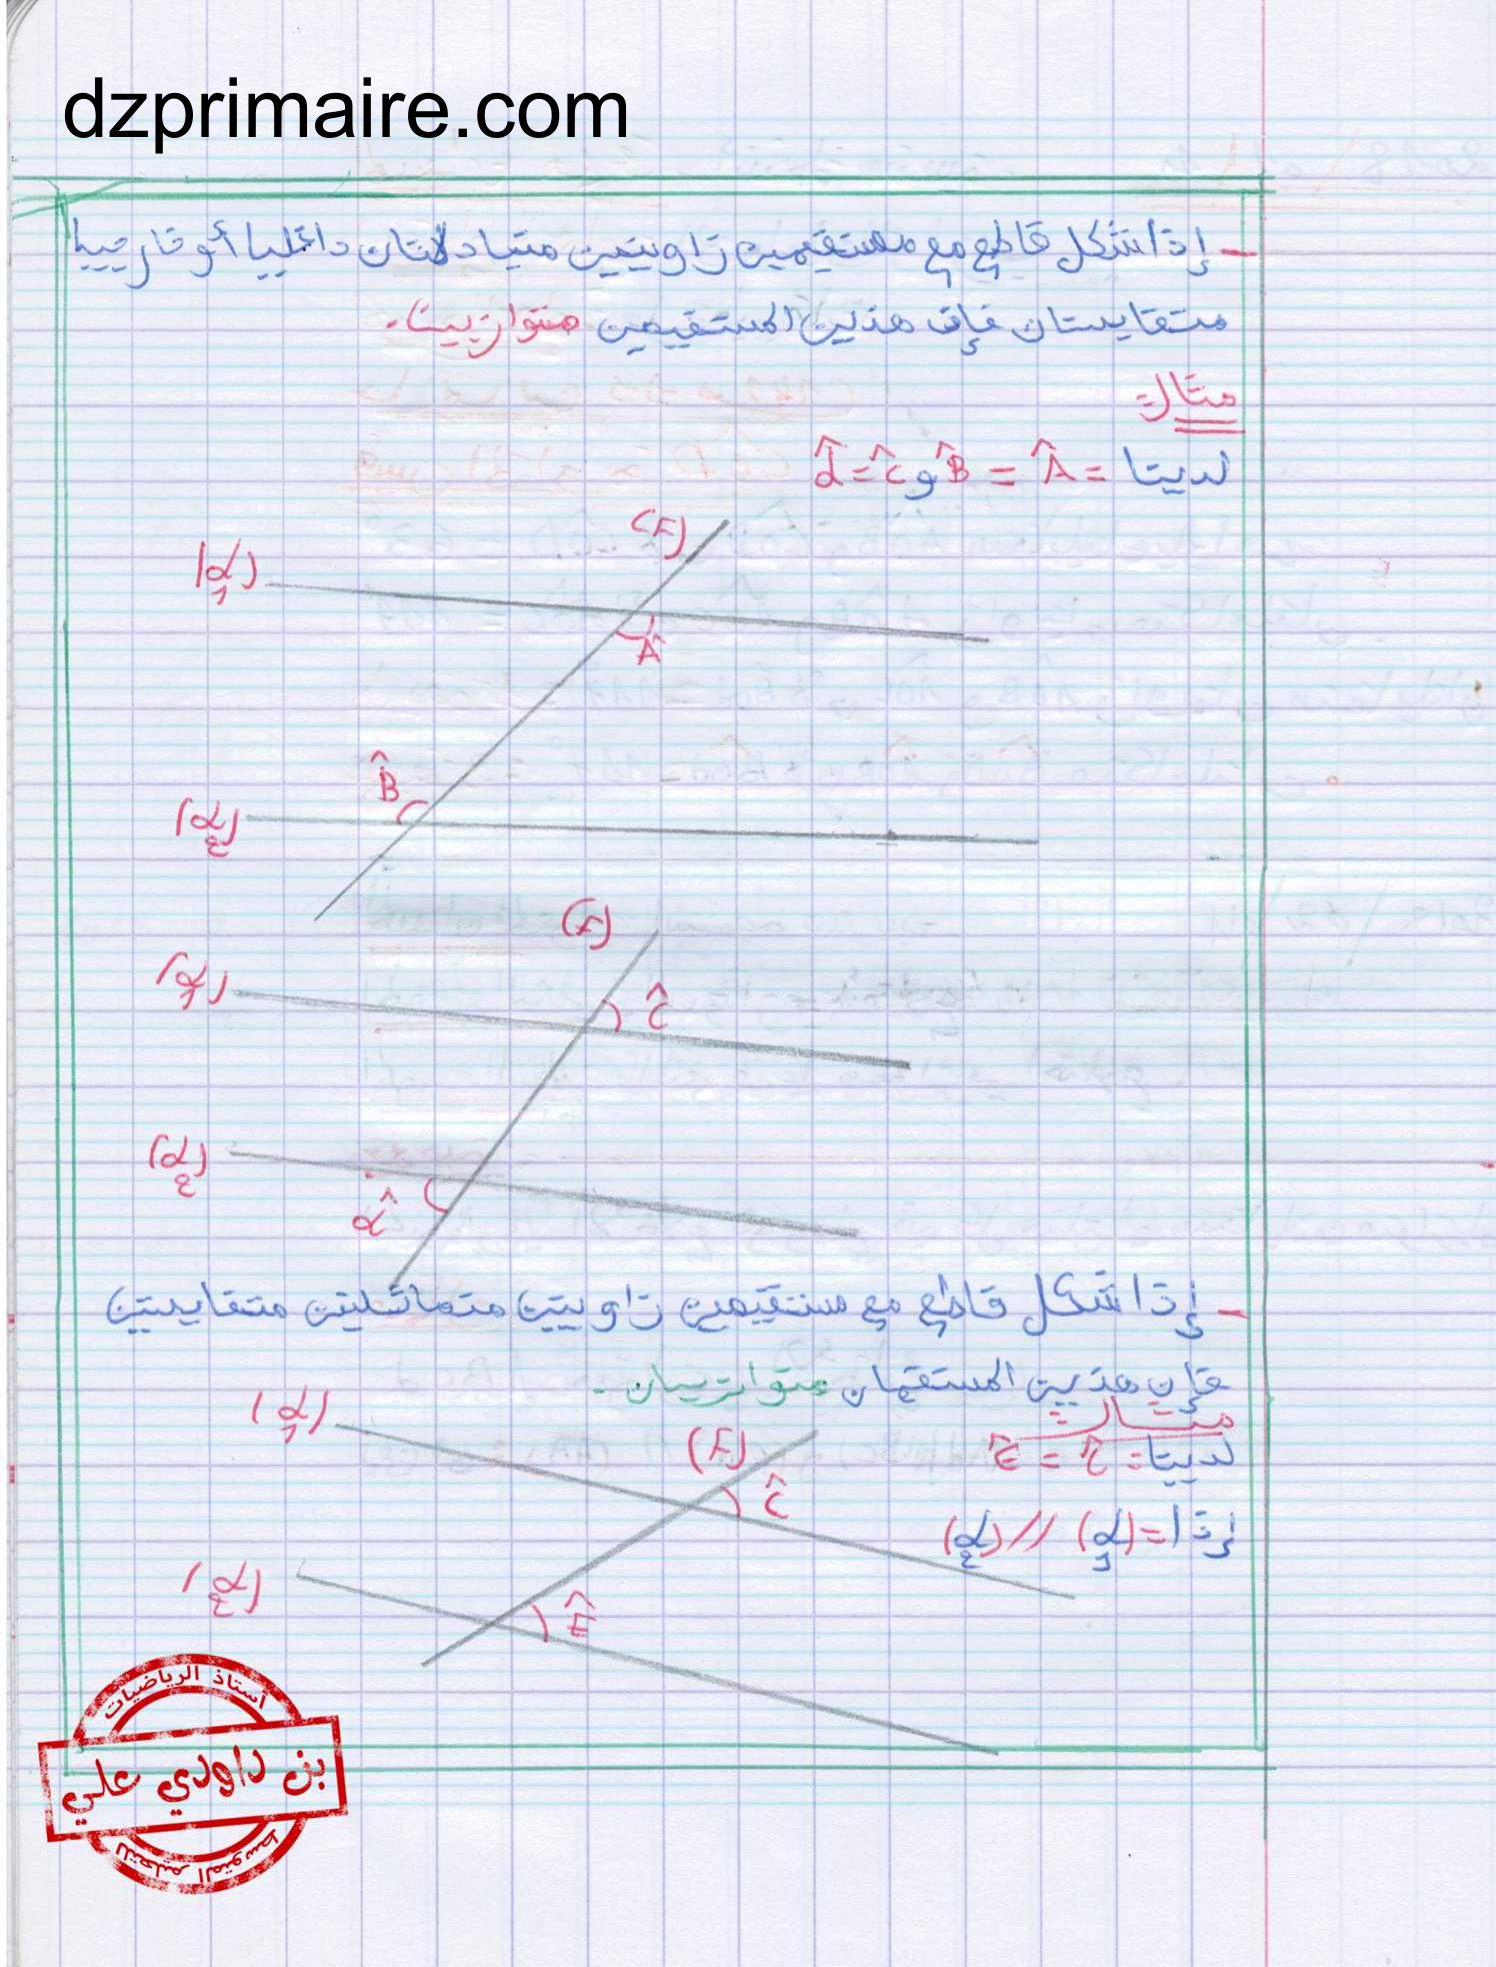 dzprimaire.com
- إذا شكل قاطع مع مستقيمين زاويتين متبادلتان داخليا أو خارجيا
متقايستان فإن هذين المستقيمين متوازيين.
مثال:
لدينا: Â = B̂ و ĉ = d̂
(F)
(d₁)
Â
B̂
(d₂)
(F)
(d₁)
ĉ
(d₂)
d̂
- إذا شكل قاطع مع مستقيمين زاويتين متماثلين متقايستين
فإن هذين المستقيمان متوازيان.
مثال:
لدينا: ĉ = Ê
إذا: (d₁) // (d₂)
(d₁)
(F)
ĉ
(d₂)
Ê
أستاذ الرياضيات
بن داودي علي
للتعليم المتوسط